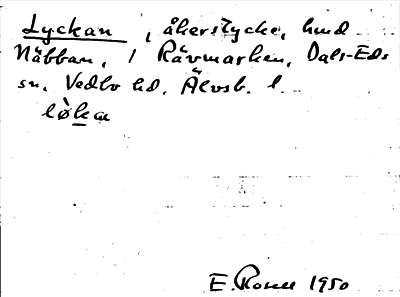 Lyckan, åkerstycke, hmd
Näbban, 1 Rävmarken, Dals-Eds
sn, Vedbo hd, Älvsb. l.
lø̀ka
E. Rosell 1950